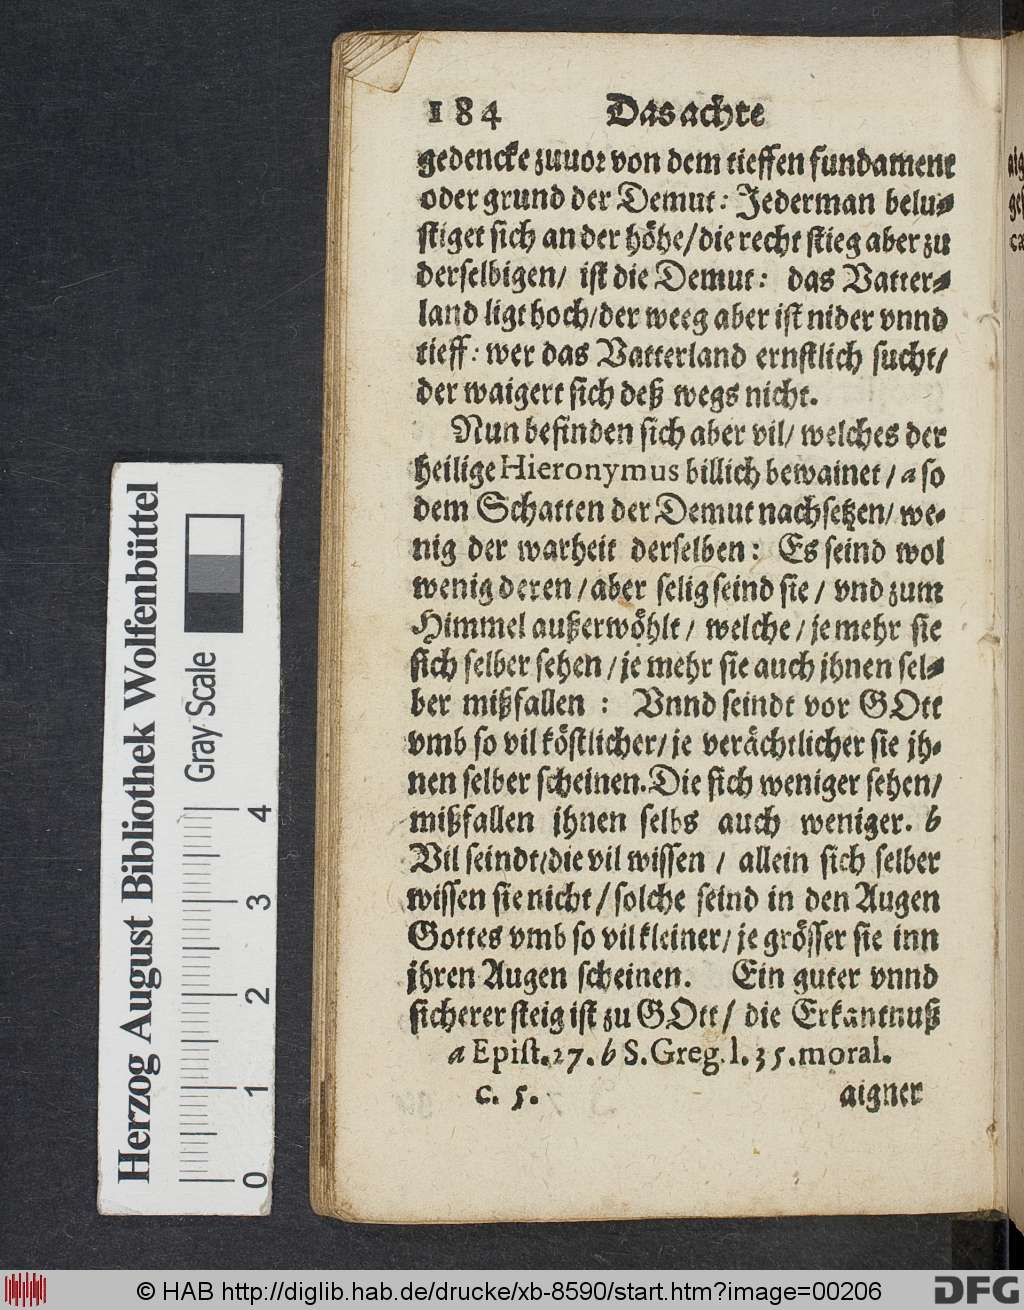 184 Das achte
gedencke zuuor von dem tieffen fundament
oder grund der Demut: Jederman belu-
stiget sich an der höhe/ die recht stieg aber zu
derselbigen/ ist die Demut: das Vatter-
land ligt hoch/ der weeg aber ist nider vnnd
tieff: wer das Vatterland ernstlich sucht/
der waigert sich deß wegs nicht.
Nun befinden sich aber vil/ welches der
heilige Hieronymus billich bewainet/ a so
dem Schatten der Demut nachsetzen/ we-
nig der warheit derselben: Es seind wol
wenig deren/ aber selig seind sie/ vnd zum
Himmel außerwöhlt/ welche/ je mehr sie
sich selber sehen/ je mehr sie auch jhnen sel-
ber mißfallen: Vnnd seindt vor GOtt
vmb so vil köstlicher/ je verächtlicher sie jh-
nen selber scheinen. Die sich weniger sehen/
mißfallen jhnen selbs auch weniger. b
Vil seindt/ die vil wissen/ allein sich selber
wissen sie nicht/ solche seind in den Augen
Gottes vmb so vil kleiner/ je grösser sie inn
jhren Augen scheinen. Ein guter vnnd
sicherer steig ist zu GOtt/ die Erkantnuß
a Epist. 27. b S. Greg. l. 35. moral.
c. 5. aigner
aig
ges
ca
Herzog August Bibliothek Wolfenbüttel
Gray Scale
0 1 2 3 4
© HAB http://diglib.hab.de/drucke/xb-8590/start.htm?image=00206
DFG